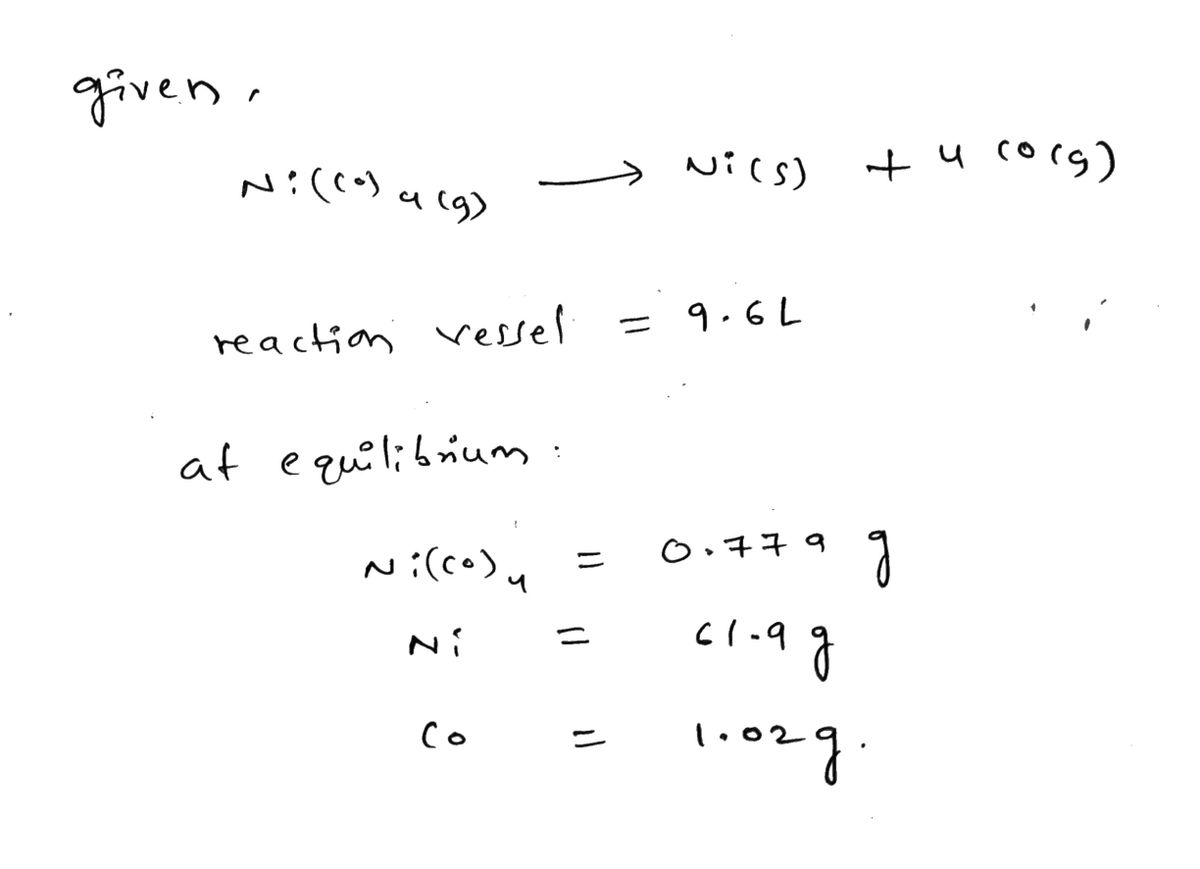 given,
Ni(CO)4(g) → Ni(s) + 4 CO(g)
reaction vessel = 9.6L
at equilibrium :
Ni(CO)4 = 0.779 g
Ni = 61.9 g
CO = 1.02g.